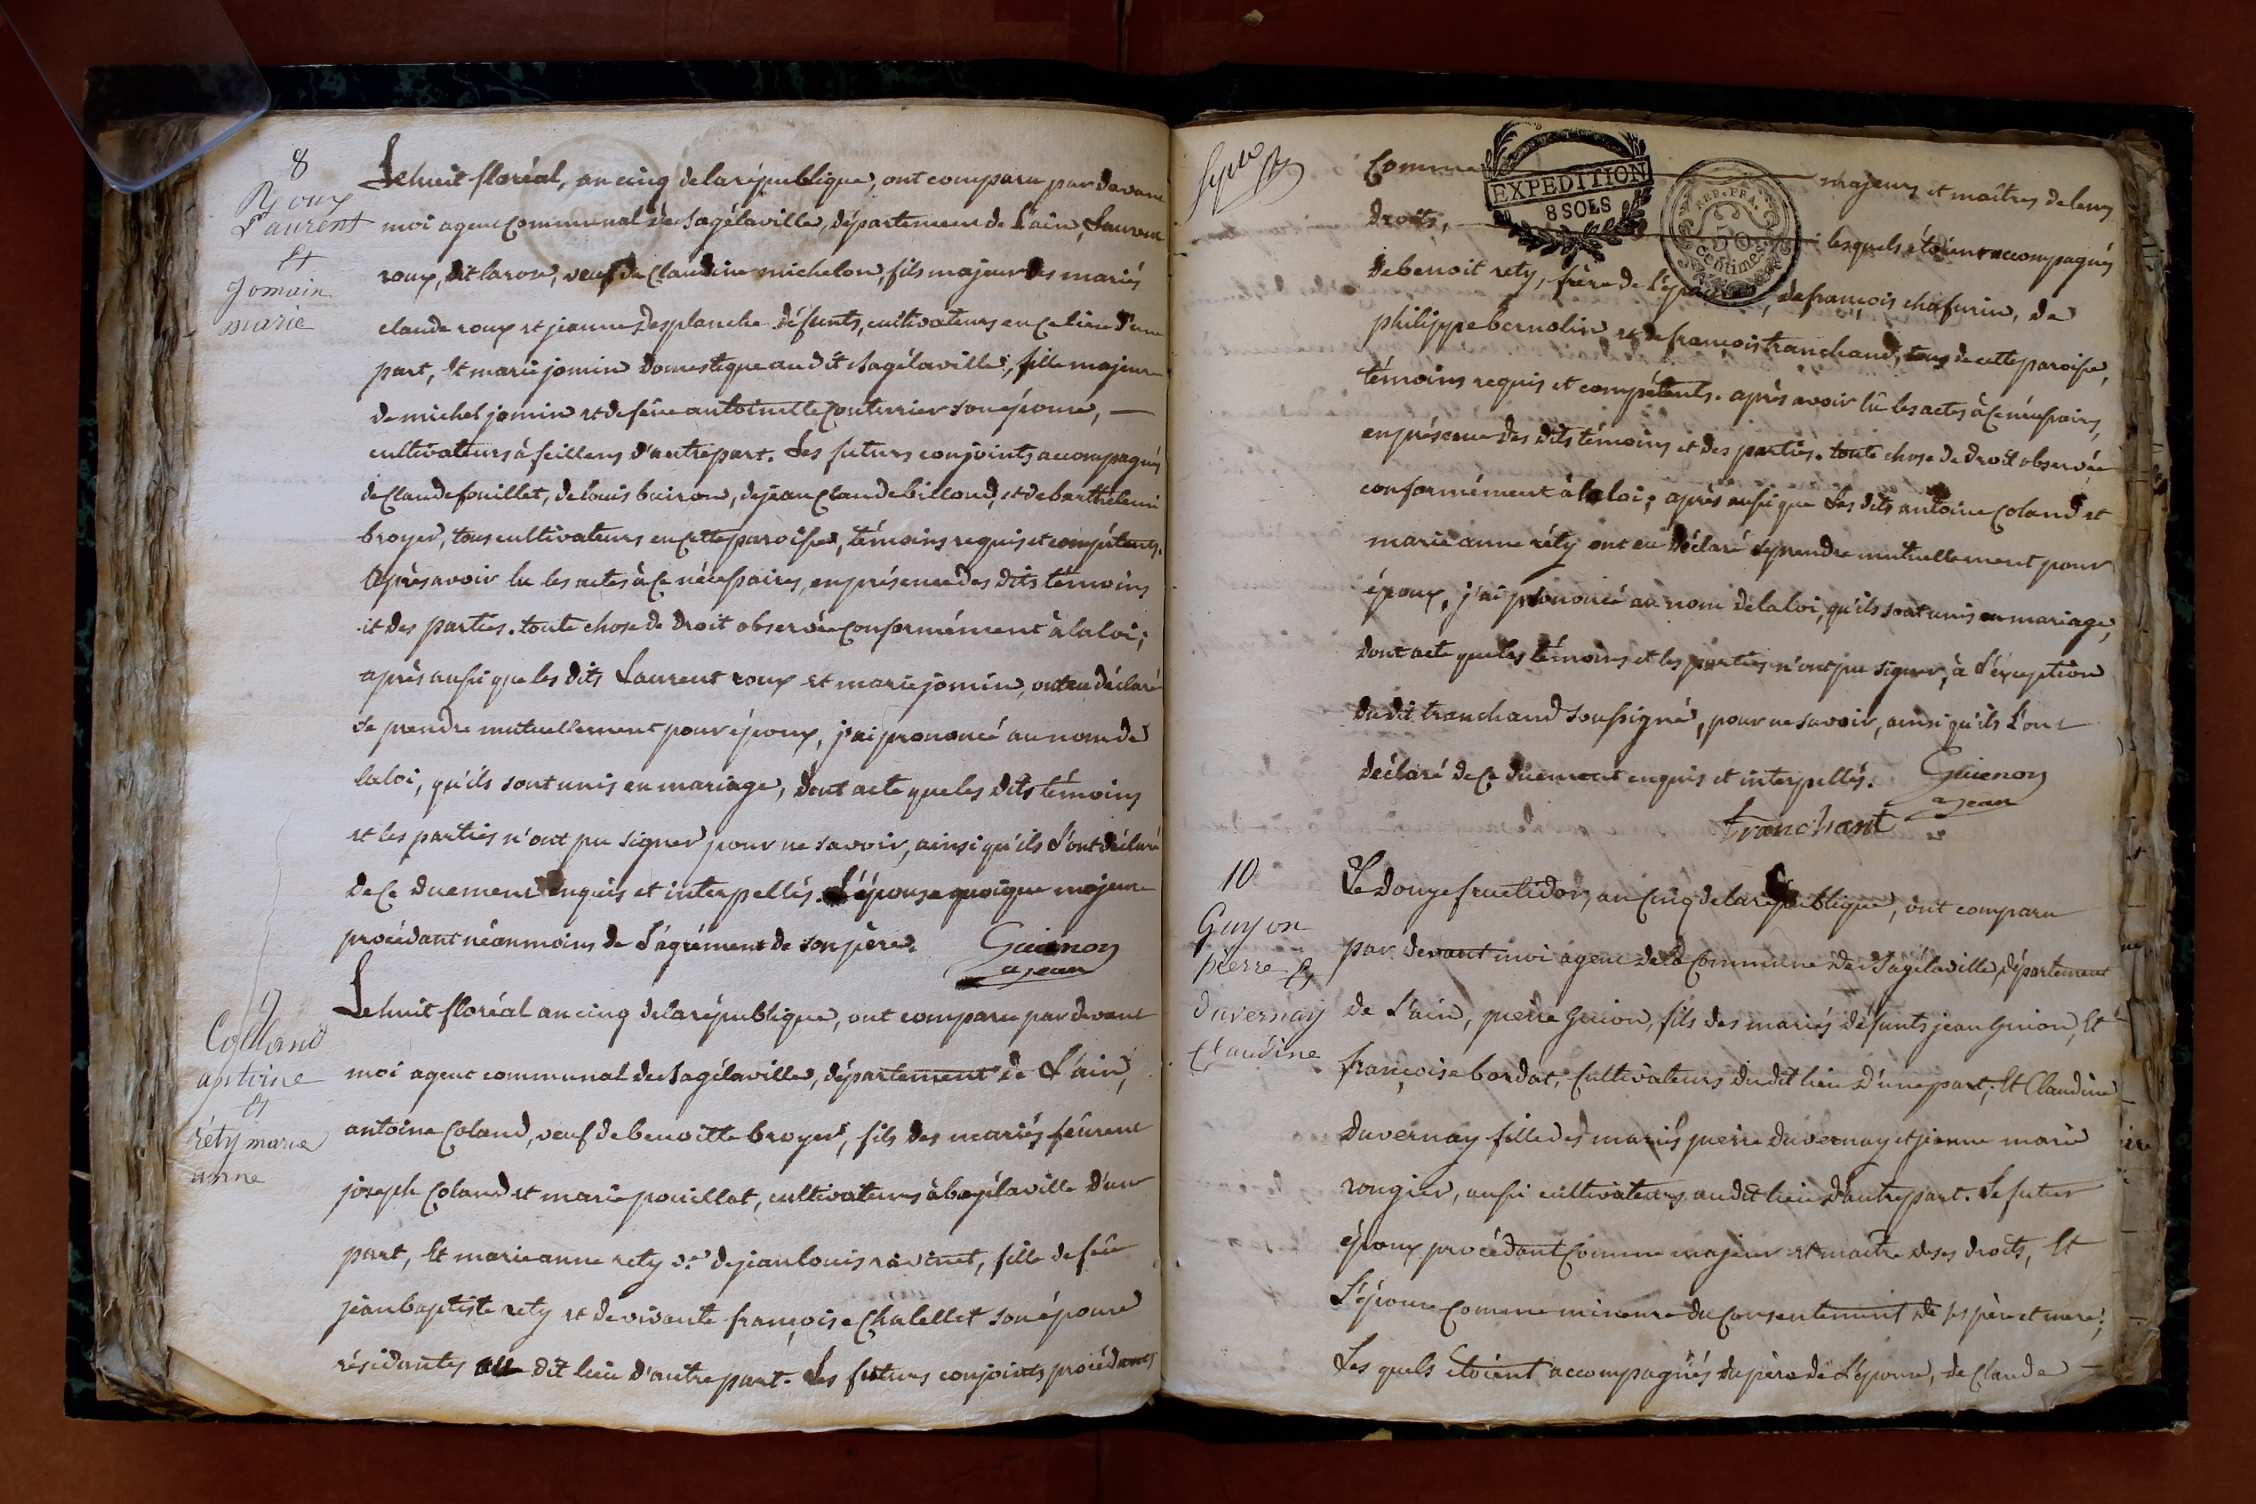 8
Roux
Laurent
et
Jomain
marie
Le huit floréal, an cinq de la république, ont comparu par devant
moi agent communal de Sagélaville, département de l'ain, Laurent
roux, dit laron, veuf de Claudine michelon, fils majeur des mariés
claude roux et jeanne Desplanche défunts, cultivateurs en ce lieu d'une
part, Et marie jomin domestique au dit Sagélaville, fille majeure
de michel jomin et de feue antoinette Couturier son épouse, —
cultivateurs à feillens d'autre part. Les futurs conjoints accompagnés
de Claude fouillet, de louis buiron, de jean Claude billoud, et de barthelemi
broyer, tous cultivateurs en cette paroisse, témoins requis et compétents.
Après avoir lu les actes à ce nécessaires, en présence des dits témoins
et des parties. toute chose de droit observée conformément à la loi;
après aussi que les dits Laurent roux et marie jomin, ont eu déclaré
se prendre mutuellement pour époux, j'ai prononcé au nom de
la loi, qu'ils sont unis en mariage, dont acte que les dits témoins
et les parties n'ont pu signer pour ne savoir, ainsi qu'ils l'ont déclaré
de ce duement enquis et interpellés. L'épouse quoique majeure
procédant néanmoins de l'agrément de son père.
Guienon
agent
9
Colland
antoine
et
réty marie
anne
Le huit floréal an cinq de la république, ont comparu par devant
moi agent communal de Sagélaville, département de l'ain,
antoine Coland, veuf de benoitte broyer, fils des mariés feûrent
joseph Coland et marie pouillat, cultivateurs à bagélaville d'une
part, Et marie anne rety ve de jean louis ravinet, fille de feu
jean baptiste rety et de vivante françoise Chalellet son épouse
résidantes au dit lieu d'autre part. Les futurs conjoints procédants
Comme majeurs et maîtres de leurs
EXPEDITION
8 SOLS
REP. FRA.
50
centimes
droits, lesquels étoient accompagnés
de benoit rety, frère de l'épouse, de françois chafurin, de
philippe bernolin et de françois tranchand, tous de cette paroisse,
témoins requis et compétents. après avoir lu les actes à ce nécessaires,
en présence des dits témoins et des parties. toute chose de droit observée
conformément à la loi; après aussi que les dits antoine Coland et
marie anne réty ont eu déclaré se prendre mutuellement pour
époux, j'ai prononcé au nom de la loi, qu'ils sont unis en mariage,
dont acte que les témoins et les parties n'ont pu signer, à l'éxception
du dit tranchand soussigné, pour ne savoir, ainsi qu'ils l'ont
déclaré de ce duement enquis et interpellés.
Guienon
agent
tranchant
10
Guyon
pierre et
duvernay
Claudine
Le douze fructidor, an Cinq de la république, ont comparu
par devant moi agent de la Commune de Sagélaville, département
de l'ain, pierre Guion, fils des mariés défunts jean Guion, Et
françoise bordat, Cultivateurs du dit lieu d'une part; Et Claudine
duvernay fille des mariés pierre duvernay et jeanne marie
rougier, aussi cultivateurs au dit lieu d'autre part. Le futur
époux procédant Comme majeur et maître de ses droits, Et
L'épouse Comme mineure du Consentement de ses père et mere;
Les quels étoient accompagnés du père de l'épouse, de Claude —